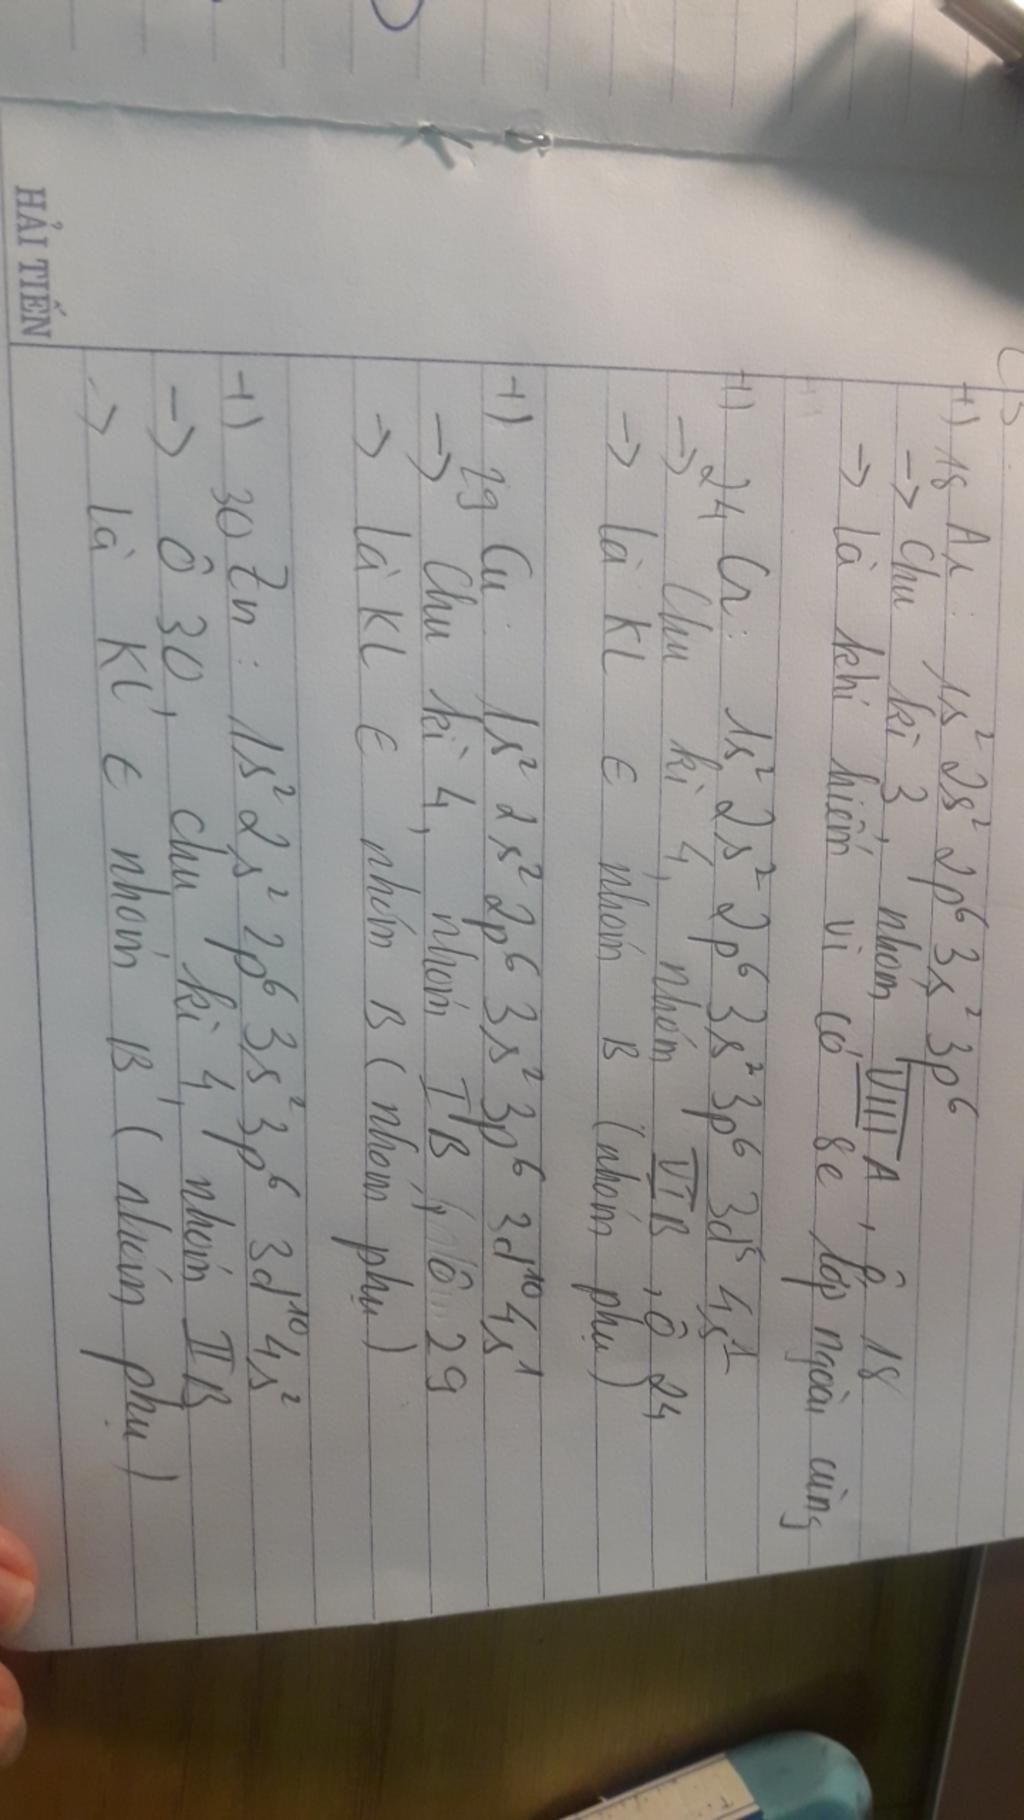 +) 18 Ar : 1s² 2s² 2p⁶ 3s² 3p⁶
→ Chu kì 3, nhóm VIII A, ô 18
→ là khí hiếm vì có 8e lớp ngoài cùng
+) 24 Cr : 1s² 2s² 2p⁶ 3s² 3p⁶ 3d⁵ 4s¹
→ Chu kì 4, nhóm VI B, ô 24
→ là KL ∈ nhóm B (nhóm phụ)
+) 29 Cu : 1s² 2s² 2p⁶ 3s² 3p⁶ 3d¹⁰ 4s¹
→ Chu kì 4, nhóm I B, ô 29
→ là KL ∈ nhóm B (nhóm phụ)
+) 30 Zn : 1s² 2s² 2p⁶ 3s² 3p⁶ 3d¹⁰ 4s²
→ Ô 30, chu kì 4, nhóm II B
→ là KL ∈ nhóm B (nhóm phụ)
HẢI TIẾN